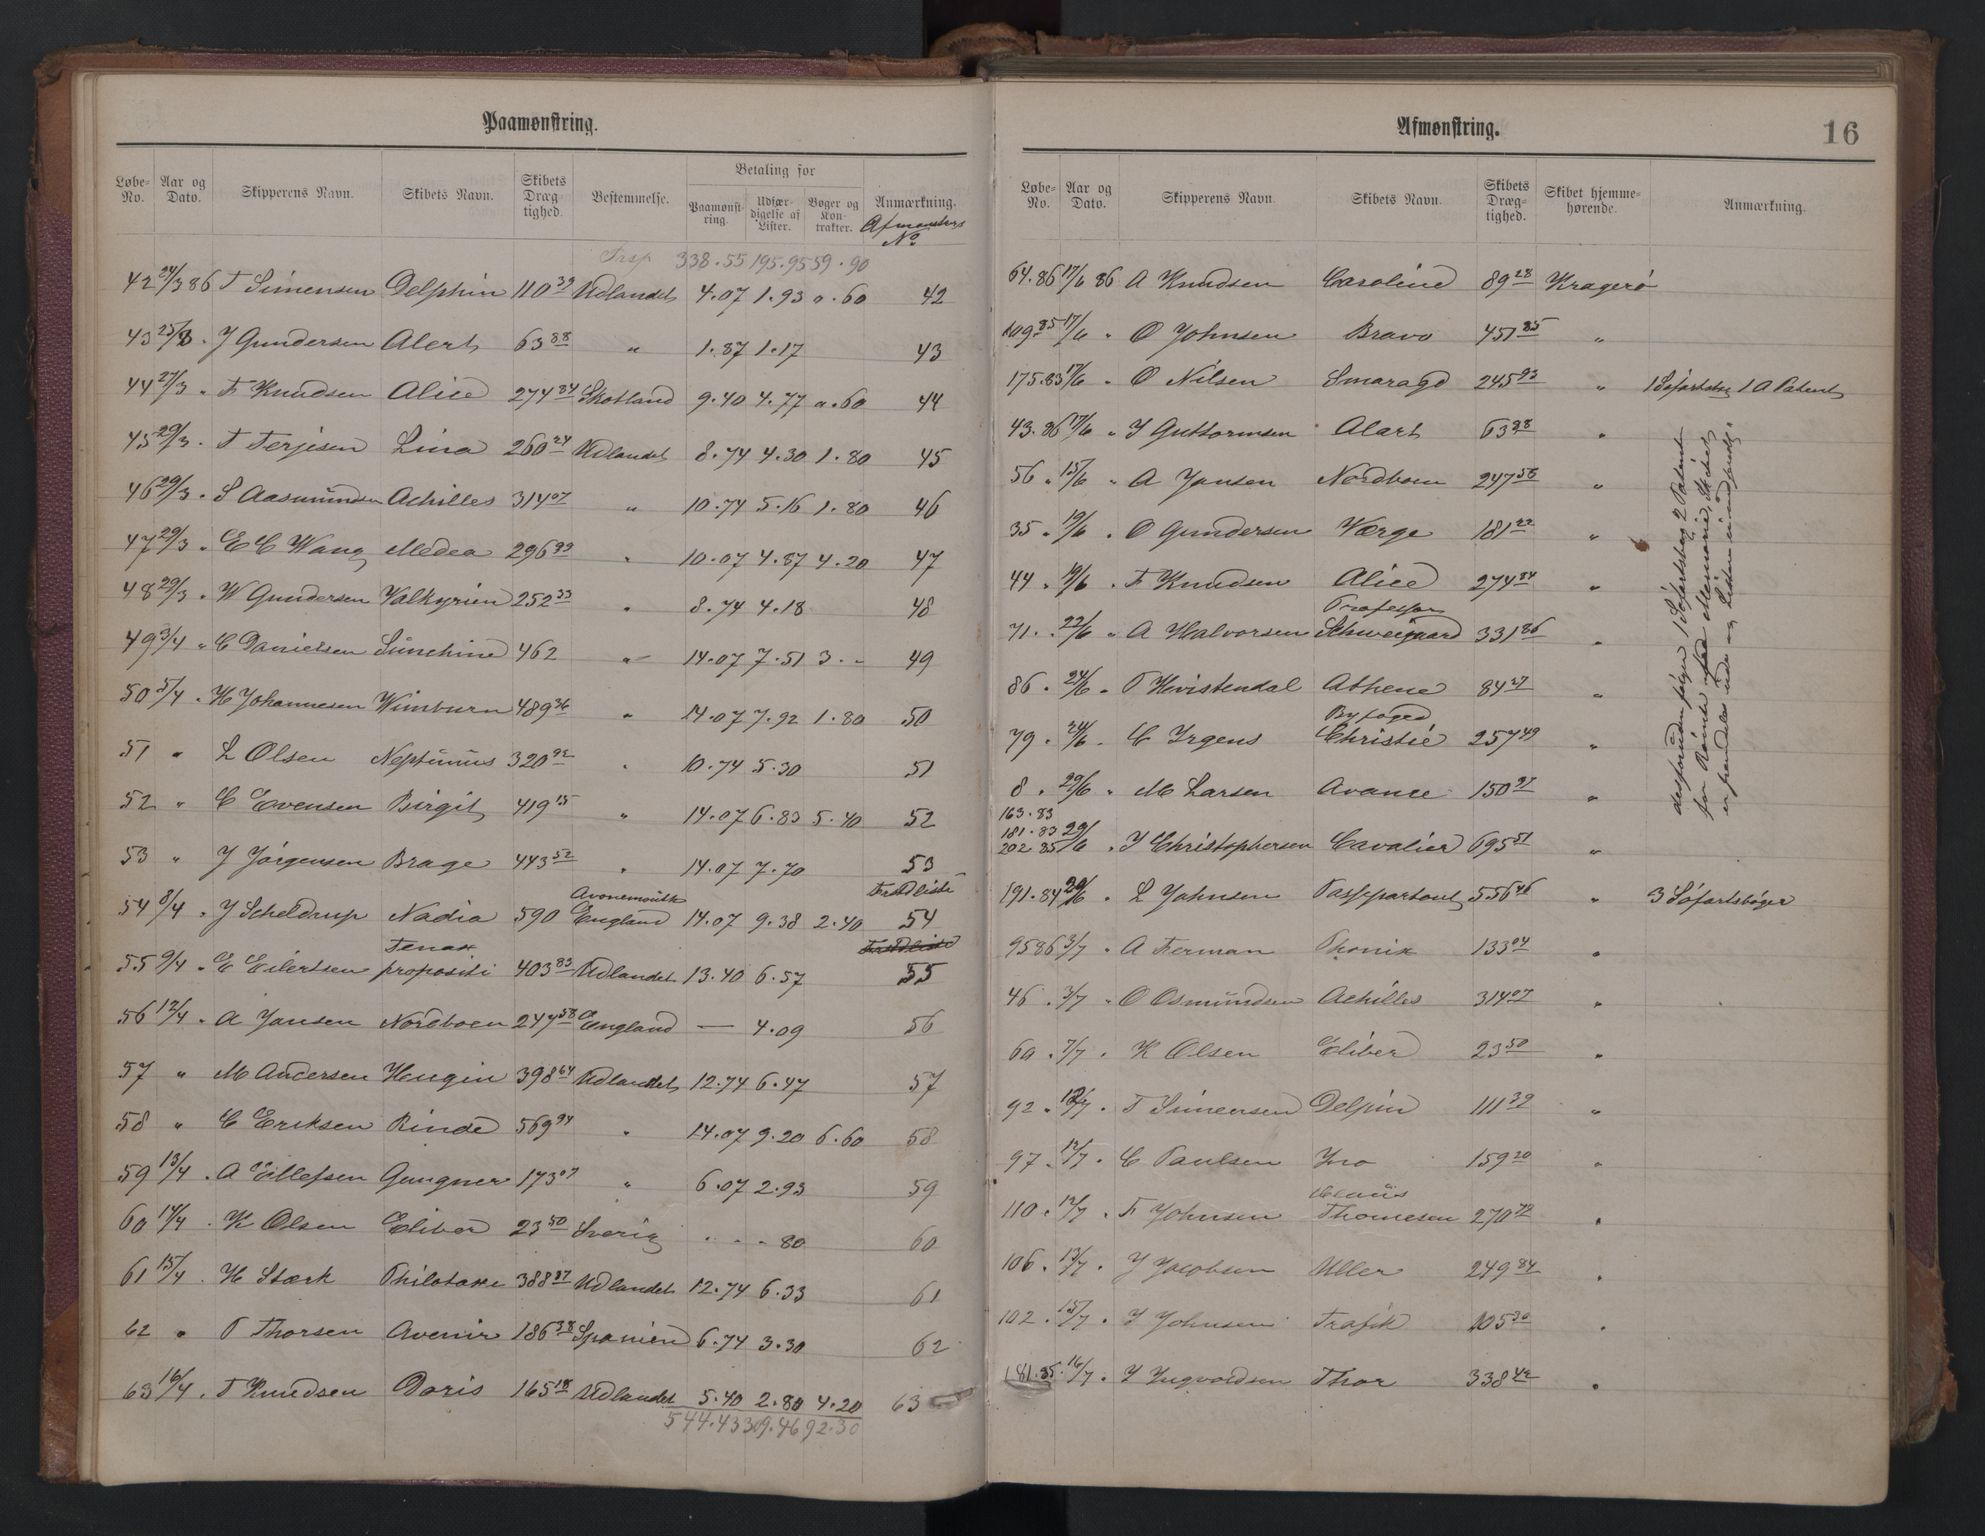 Paamønstring.
Løbe-No. Aar og Dato. Skipperens Navn. Skibets Navn. Skibets Drægtighed. Bestemmelse. Betaling for Paamønstring. Udfærdigelse af Lister. Bøger og Kontrakter. Anmærkning.
Afmønstrgs No
Trsp 338.55 195.95 59.90
42 24/3 86 T Simensen Delphin 110 39 Udlandet 4.07 1.93 ".60 42
43 25/3 " J Gundersen Alert 63 88 " 1.87 1.17 43
44 27/3 " F Knudsen Alice 274 84 Skotland 9.40 4.77 ".60 44
45 29/3 " T Terjesen Lina 260 24 Udlandet 8.74 4.30 1.80 45
46 29/3 " S Aasmundsen Achilles 314 07 " 10.74 5.16 1.80 46
47 29/3 " E C Wang Medea 296 99 " 10.07 4.87 4.20 47
48 29/3 " W Gundersen Valkyrien 252 33 " 8.74 4.18 48
49 3/4 " C Danielsen Sunchine 462 " 14.07 7.51 3.- 49
50 5/4 " H Johannesen Wimburn 489 36 " 14.07 7.92 1.80 50
51 " L Olsen Neptunus 320 92 " 10.74 5.30 51
52 " C Evensen Birgit 419 15 " 14.07 6.83 5.40 52
53 " J Jørgensen Brage 443 52 " 14.07 7.70 53
54 8/4 " J Scheldrup Nadia 590 Avonemouth England 14.07 9.38 2.40 54
55 9/4 " E Eilertsen Tenax propositi 403 83 Udlandet 13.40 6.57 55
56 12/4 " A Jansen Nordboen 247 58 England — 4.09 56
57 " M Andersen Heugin 398 64 Udlandet 12.74 6.47 57
58 " C Eriksen Rinde 569 94 " 14.07 9.20 6.60 58
59 13/4 " A Ellefsen Gungner 173 07 " 6.07 2.93 59
60 14/4 " K Olsen Eliber 23 50 Sverig " " " 80 60
61 15/4 " H Stærk Philotaxe 388 37 Udlandet 12.74 6.33 61
62 " T Thorsen Avenir 186 38 Spanien 6.74 3.30 62
63 16/4 " T Knudsen Doris 165 18 Udlandet 5.40 2.80 4.20 63
544.43 309.46 92.30
Afmønstring.
16
Løbe-No. Aar og Dato. Skipperens Navn. Skibets Navn. Skibets Drægtighed. Skibet hjemmehørende. Anmærkning.
64.86 17/6 86 A Knudsen Caroline 89 28 Kragerø
109.85 17/6 " O Johnsen Bravo 451 85 "
175.83 17/6 " O Nilsen Smaragd 245 93 " 1 Søfartsbog 1 A Patent
43.86 17/6 " J Guttormsen Alart 63 28 "
56 " 15/6 " A Jansen Nordboen 247 58 "
35 " 19/6 " O Gundersen Værge 181 22 "
44 " 19/6 " F Knudsen Alice 274 84 "
71 " 22/6 " A Halvorsen Professor Schweigaard 331 86 "
86 " 24/6 " T Hvistendal Athene 84 27 "
79 " 24/6 " C Irgens Byfoged Christie 257 49 "
8 " 29/6 " M Larsen Avance 150 97 "
163.83
181.83
202.85 29/6 " J Christophersen Cavalier 695 51 "
191.84 29/6 " L Johnsen Passepartout 556 46 " 3 Søfartsbøger
95 86 3/7 " A Ferman Phonix 133 04 "
46 " 3/7 " O Osmundsen Achilles 314 07 "
60 " 7/7 " K Olsen Eliber 23 50 "
92 " 12/7 " T Simensen Delpin 111 39 "
97 " 12/7 " C Paulsen Ino 159 20 "
110 " 12/7 " F Johnsen Claus Thomesen 270 72 "
106 " 13/7 " J Jacobsen Uller 249 84 "
102 " 15/7 " J Johnsen Trafik 105 30 "
181.85 " 16/7 " J Ingvordsen Thor 338 42 "